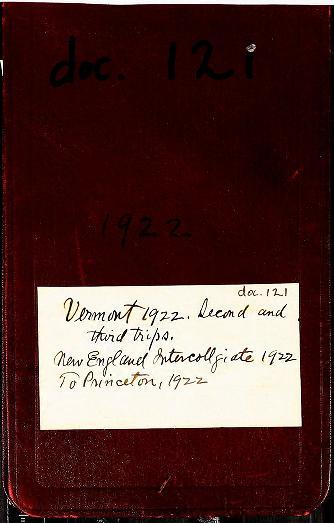 doc. 121
1922
doc. 121
Vermont 1922. Second and
third trips.
New England Intercollgiate 1922
To Princeton, 1922